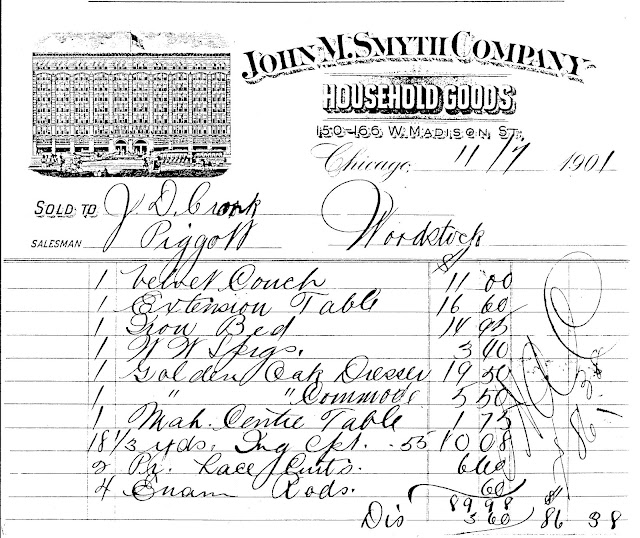 JOHN M. SMYTH COMPANY
HOUSEHOLD GOODS
150-166 W. MADISON ST.
Chicago, 11/7 1901
SOLD TO J. D. Cronk Woodstock
SALESMAN Piggott
1 Velvet Couch 11 00
1 Extension Table 16 60
1 Iron Bed 14 95
1 W W Spgs. 3 40
1 Golden Oak Dresser 19 50
1 " " Commode 5 50
1 Mah. Centre Table 1 75
18 1/3 yds. Ing Cpt. .55 10 08
2 Pr. Lace Curts. 6 60
4 Enam Rods. 60
89 98
Dis 3 60 86 38